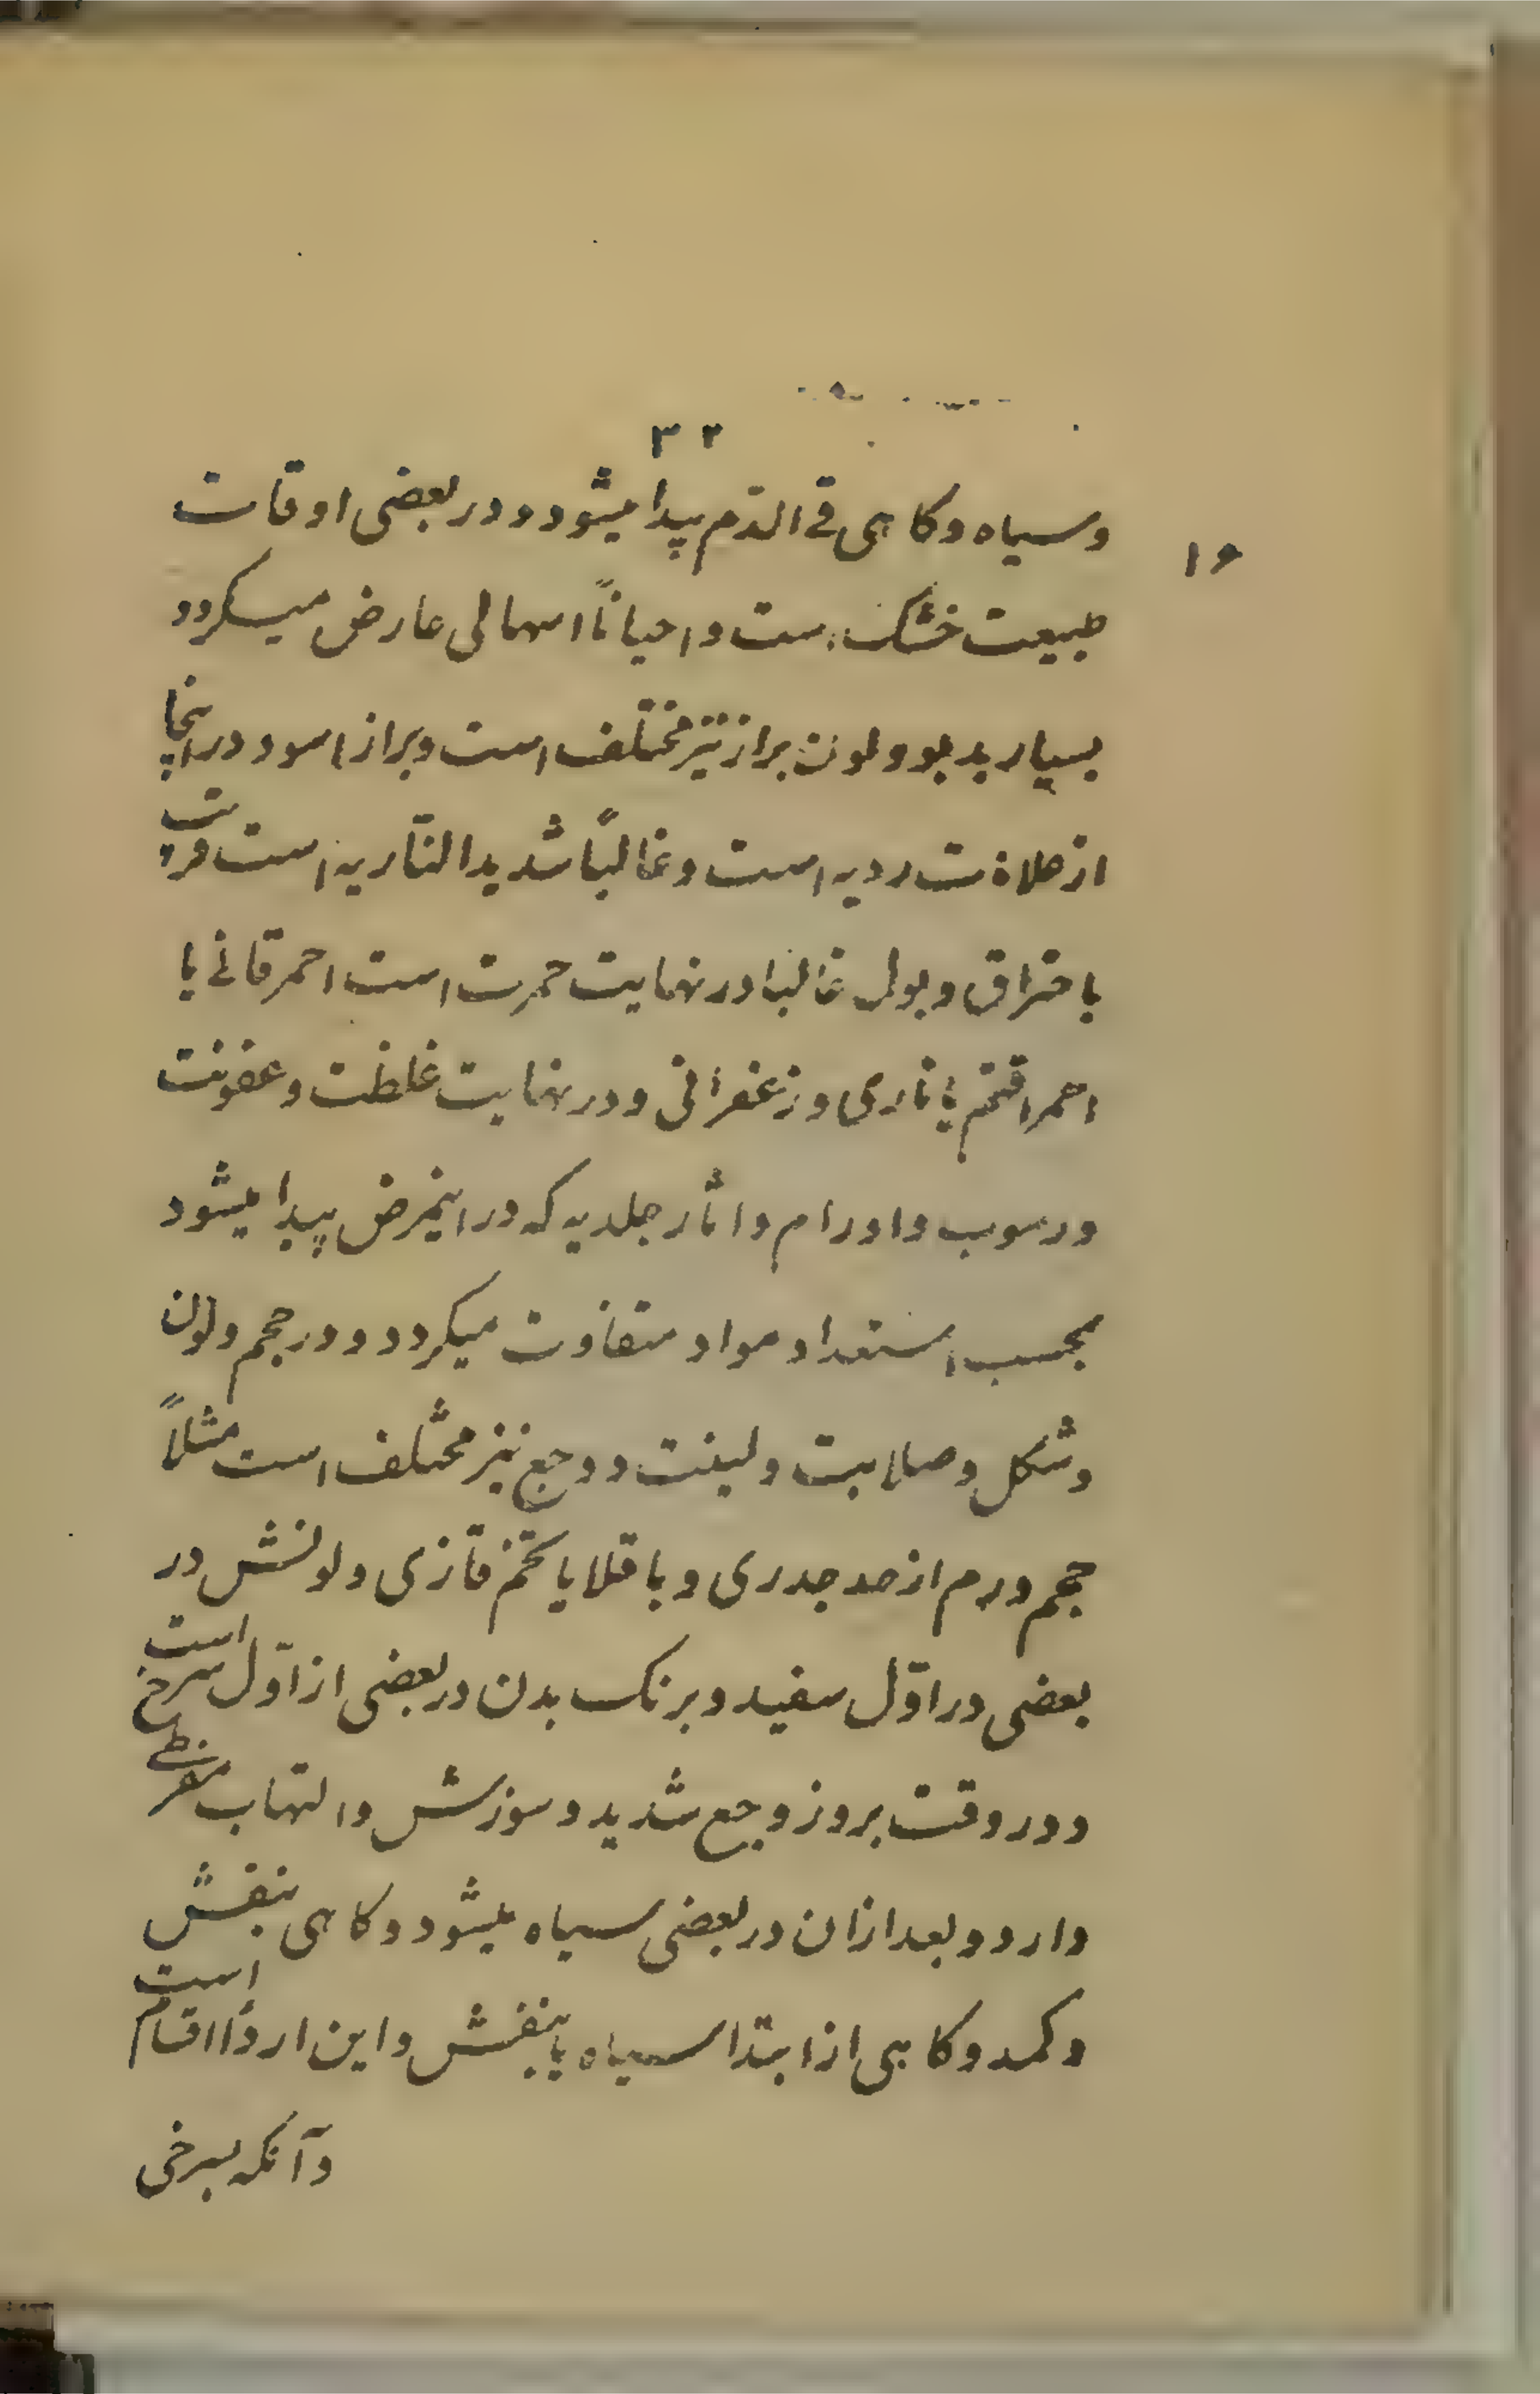 ۳۲
۱۶
وسیاه وکاهی قی الدّم پیدا میشود ودر بعضی اوقات
طبیعت خشک است واحیاناً اسهالی عارض میکردد
بسیار بدبو ولون براز نیز مختلف است وبراز اسود دراینجا
از علامات ردیه است وغالباً شدید النّاریه است وقریب
باحتراق وبول غالبا در نهایت حمرت است احمر قانی یا
احمر اقتم یا ناری وزعفرانی ودر نهایت غلظت وعفونت
ورسوب واورام واثار جلدیه که در اینمرض پیدا میشود
بحسب استعداد مواد متفاوت میکردد ودر حجم ولون
وشکل وصلابت ولینت ووجع نیز مختلف است مثلاً
حجم ورم از حد جدری وباقلا یا تخم قازی ولونش در
بعضی در اوّل سفید وبرنک بدن در بعضی از اوّل سرخ است
ودر وقت بروز وجع شدید وسوزش والتهاب مفرطی
دارد وبعد ازان در بعضی سیاه میشود وکاهی بنفش
وکمد وکاهی از ابتدا سیاه یا بنفش واین اردأ اقسام است
وآنکه بسرخی